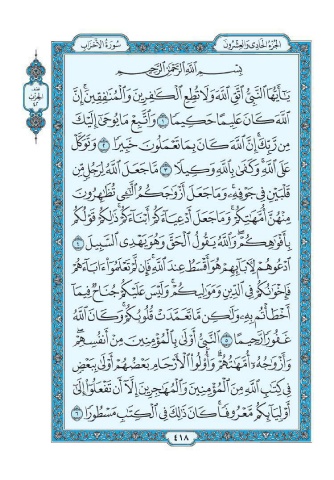 سُورَةُ الأَحْزَابِ
الجُزْءُ الحَادِي وَالعِشْرُونَ
بِسْمِ اللَّهِ الرَّحْمَٰنِ الرَّحِيمِ
يَٰٓأَيُّهَا ٱلنَّبِيُّ ٱتَّقِ ٱللَّهَ وَلَا تُطِعِ ٱلْكَٰفِرِينَ وَٱلْمُنَٰفِقِينَۗ إِنَّ
ٱللَّهَ كَانَ عَلِيمًا حَكِيمًا ١ وَٱتَّبِعْ مَا يُوحَىٰٓ إِلَيْكَ
مِن رَّبِّكَۚ إِنَّ ٱللَّهَ كَانَ بِمَا تَعْمَلُونَ خَبِيرًا ٢ وَتَوَكَّلْ
عَلَى ٱللَّهِۚ وَكَفَىٰ بِٱللَّهِ وَكِيلًا ٣ مَّا جَعَلَ ٱللَّهُ لِرَجُلٍ مِّن
قَلْبَيْنِ فِي جَوْفِهِۦۚ وَمَا جَعَلَ أَزْوَٰجَكُمُ ٱلَّٰٓـِٔي تُظَٰهِرُونَ
مِنْهُنَّ أُمَّهَٰتِكُمْۚ وَمَا جَعَلَ أَدْعِيَآءَكُمْ أَبْنَآءَكُمْۚ ذَٰلِكُمْ قَوْلُكُم
بِأَفْوَٰهِكُمْۖ وَٱللَّهُ يَقُولُ ٱلْحَقَّ وَهُوَ يَهْدِي ٱلسَّبِيلَ ٤
ٱدْعُوهُمْ لِأٓبَآئِهِمْ هُوَ أَقْسَطُ عِندَ ٱللَّهِۚ فَإِن لَّمْ تَعْلَمُوٓا۟ ءَابَآءَهُمْ
فَإِخْوَٰنُكُمْ فِي ٱلدِّينِ وَمَوَٰلِيكُمْۚ وَلَيْسَ عَلَيْكُمْ جُنَاحٌ فِيمَآ
أَخْطَأْتُم بِهِۦ وَلَٰكِن مَّا تَعَمَّدَتْ قُلُوبُكُمْۚ وَكَانَ ٱللَّهُ
غَفُورًا رَّحِيمًا ٥ ٱلنَّبِيُّ أَوْلَىٰ بِٱلْمُؤْمِنِينَ مِنْ أَنفُسِهِمْۖ
وَأَزْوَٰجُهُۥٓ أُمَّهَٰتُهُمْۗ وَأُو۟لُوا۟ ٱلْأَرْحَامِ بَعْضُهُمْ أَوْلَىٰ بِبَعْضٍ
فِي كِتَٰبِ ٱللَّهِ مِنَ ٱلْمُؤْمِنِينَ وَٱلْمُهَٰجِرِينَ إِلَّآ أَن تَفْعَلُوٓا۟ إِلَىٰٓ
أَوْلِيَآئِكُم مَّعْرُوفًاۚ كَانَ ذَٰلِكَ فِي ٱلْكِتَٰبِ مَسْطُورًا ٦
٤١٨